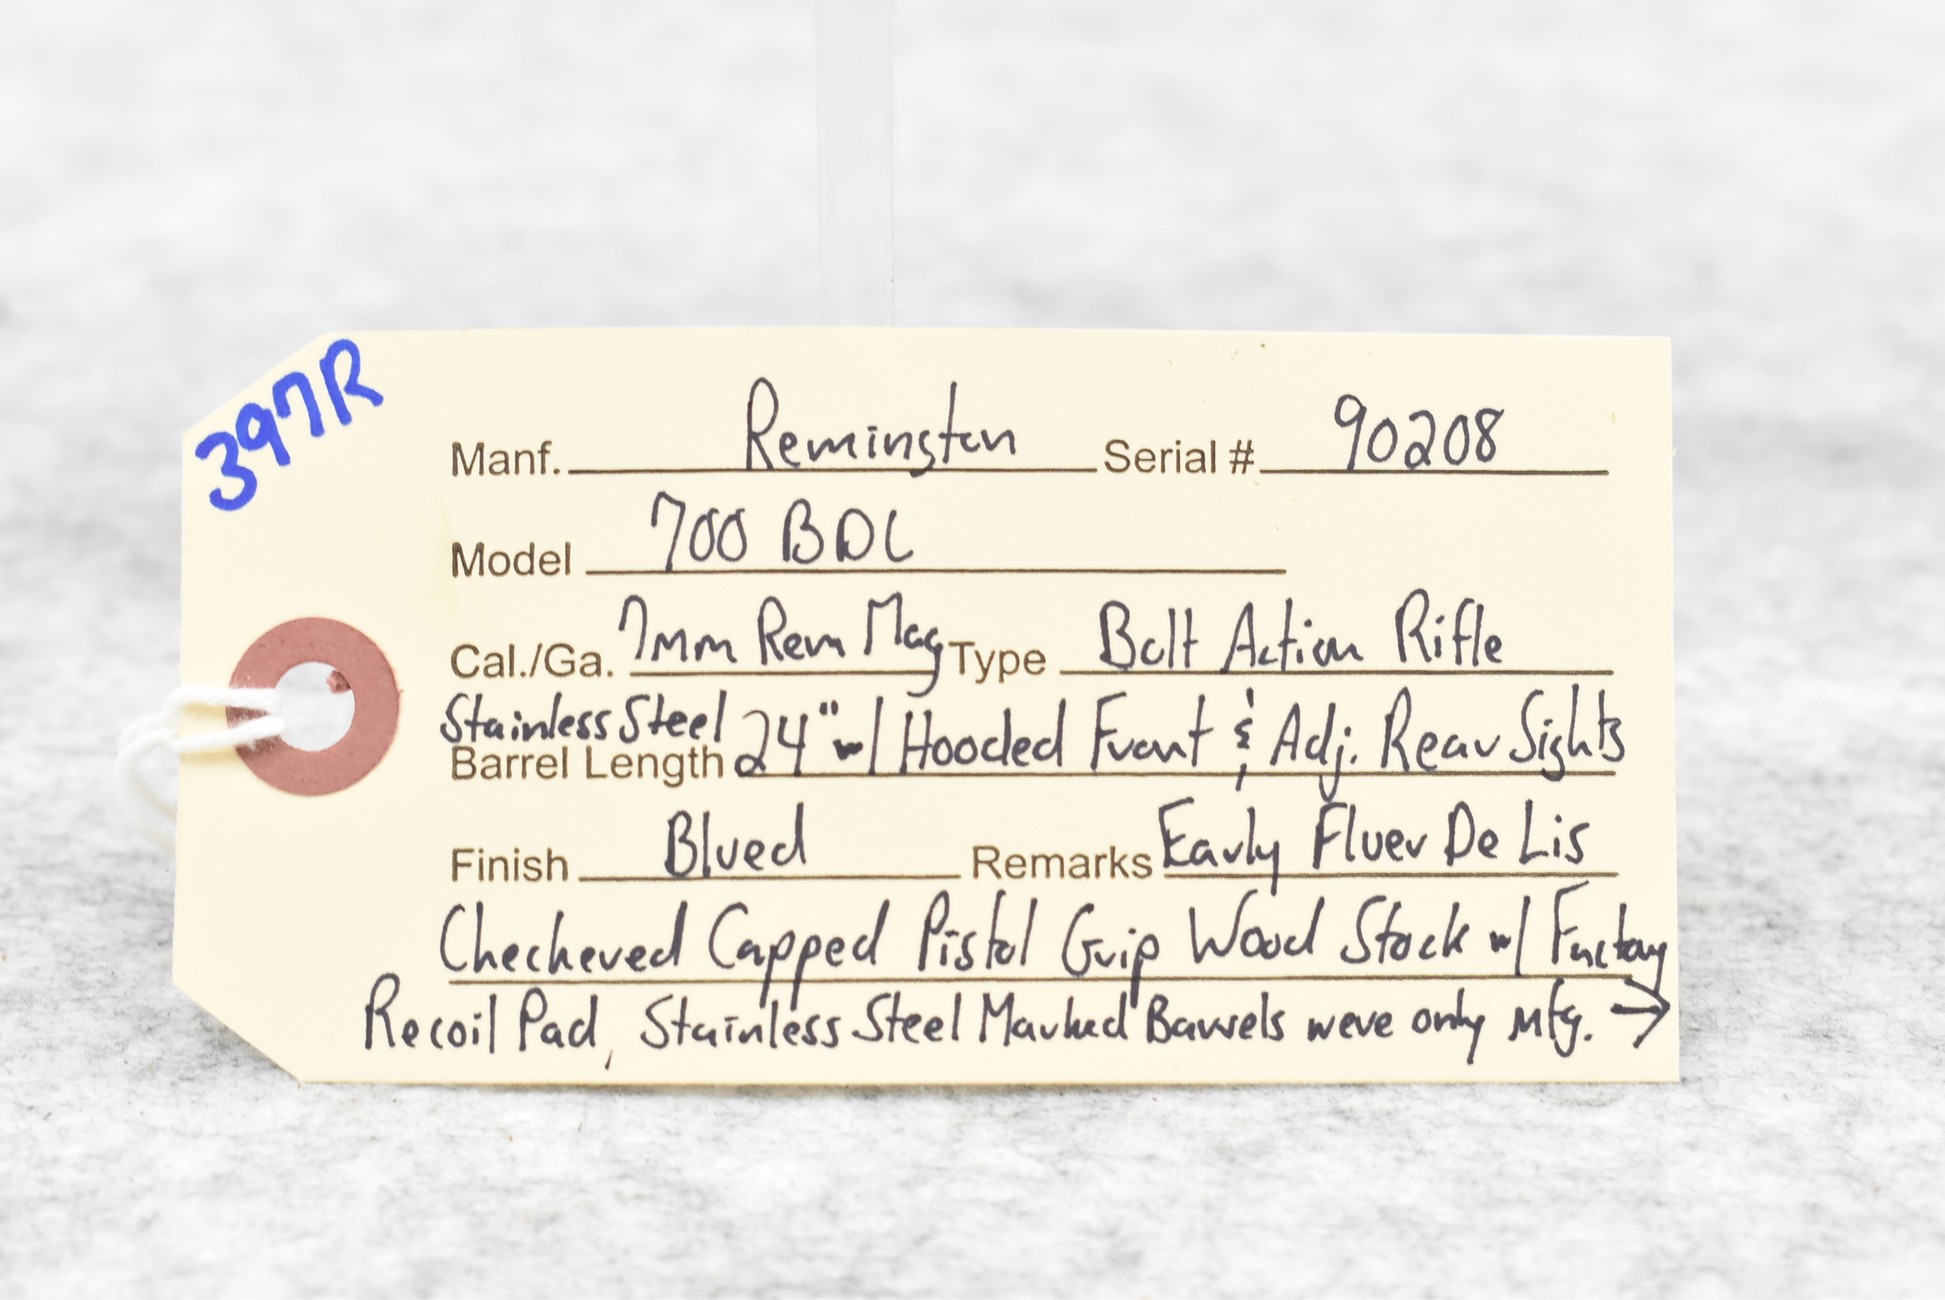 397R
Manf. Remington Serial # 90208
Model 700 BDL
Cal./Ga. 7mm Rem Mag Type Bolt Action Rifle
Stainless Steel
Barrel Length 24" w/ Hooded Front & Adj. Rear Sights
Finish Blued Remarks Early Fluer De Lis
Checkered Capped Pistol Grip Wood Stock w/ Factory
Recoil Pad, Stainless Steel Marked Barrels were only mfg. →